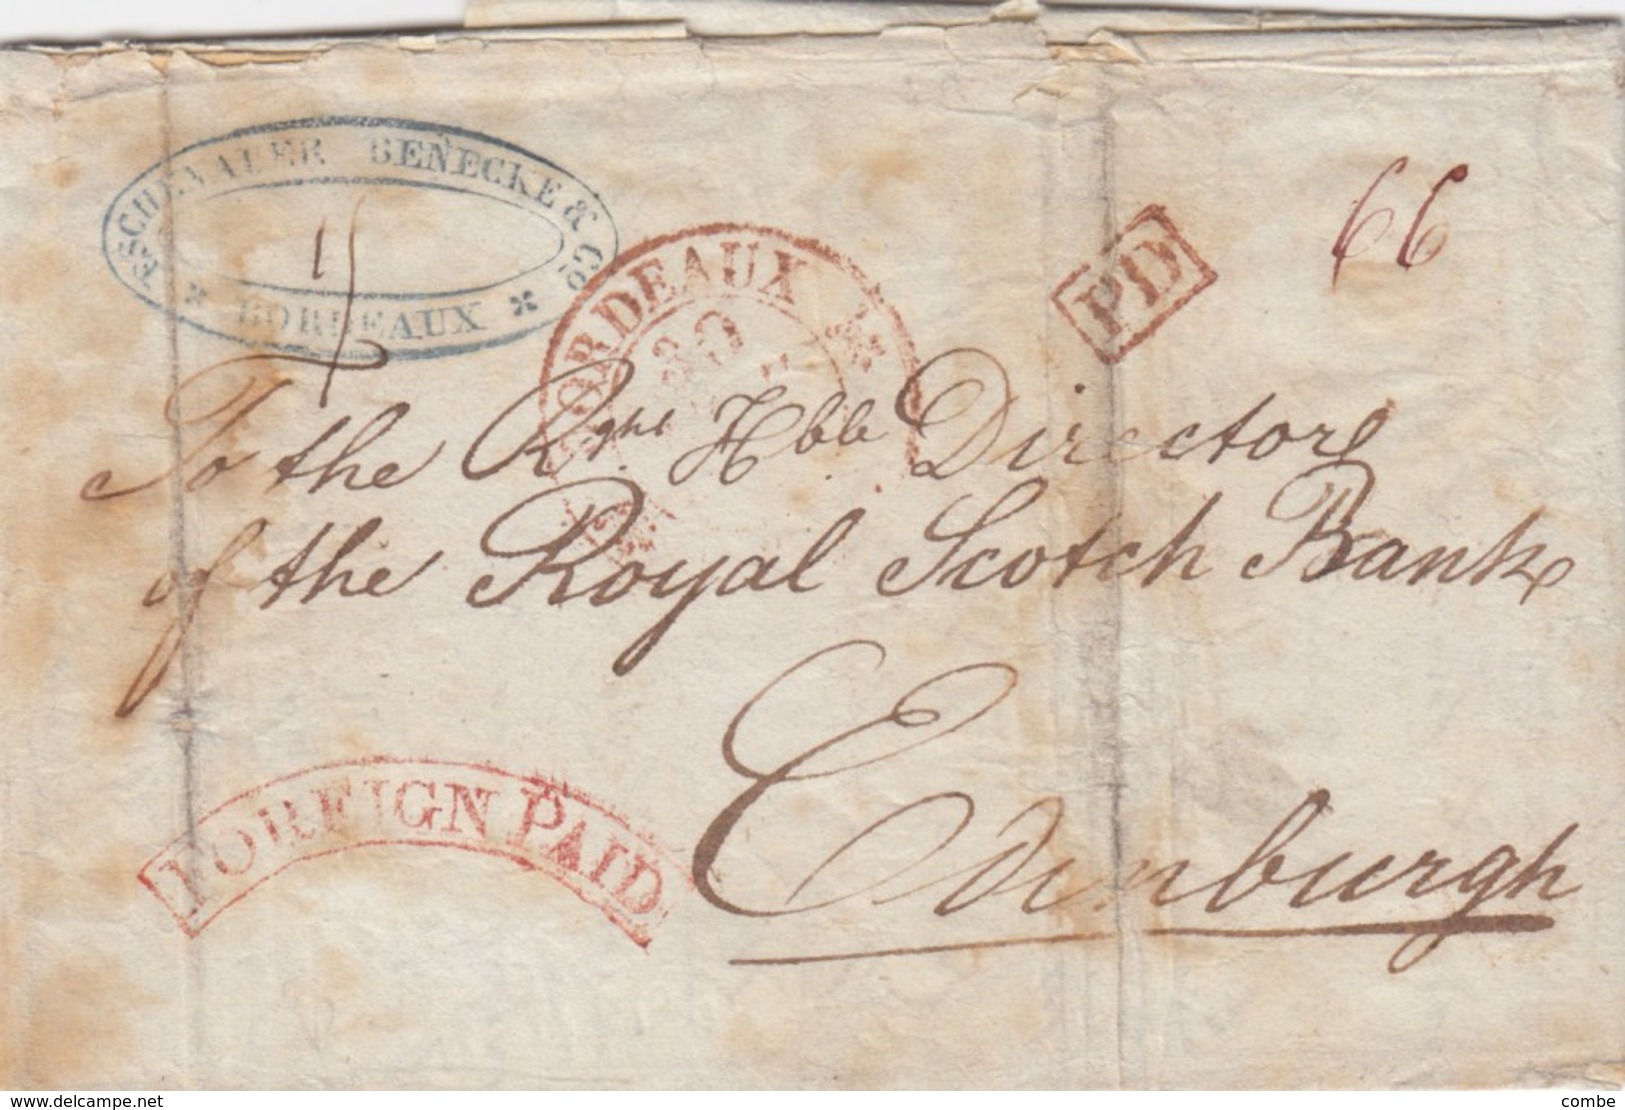 ESCHENAUER BENECKE & Co
BORDEAUX
15
BORDEAUX
30
PD
66
To the Rght Hbble Directors
of the Royal Scotch Bank
Edinburgh
FOREIGN PAID
www.delcampe.net
combe